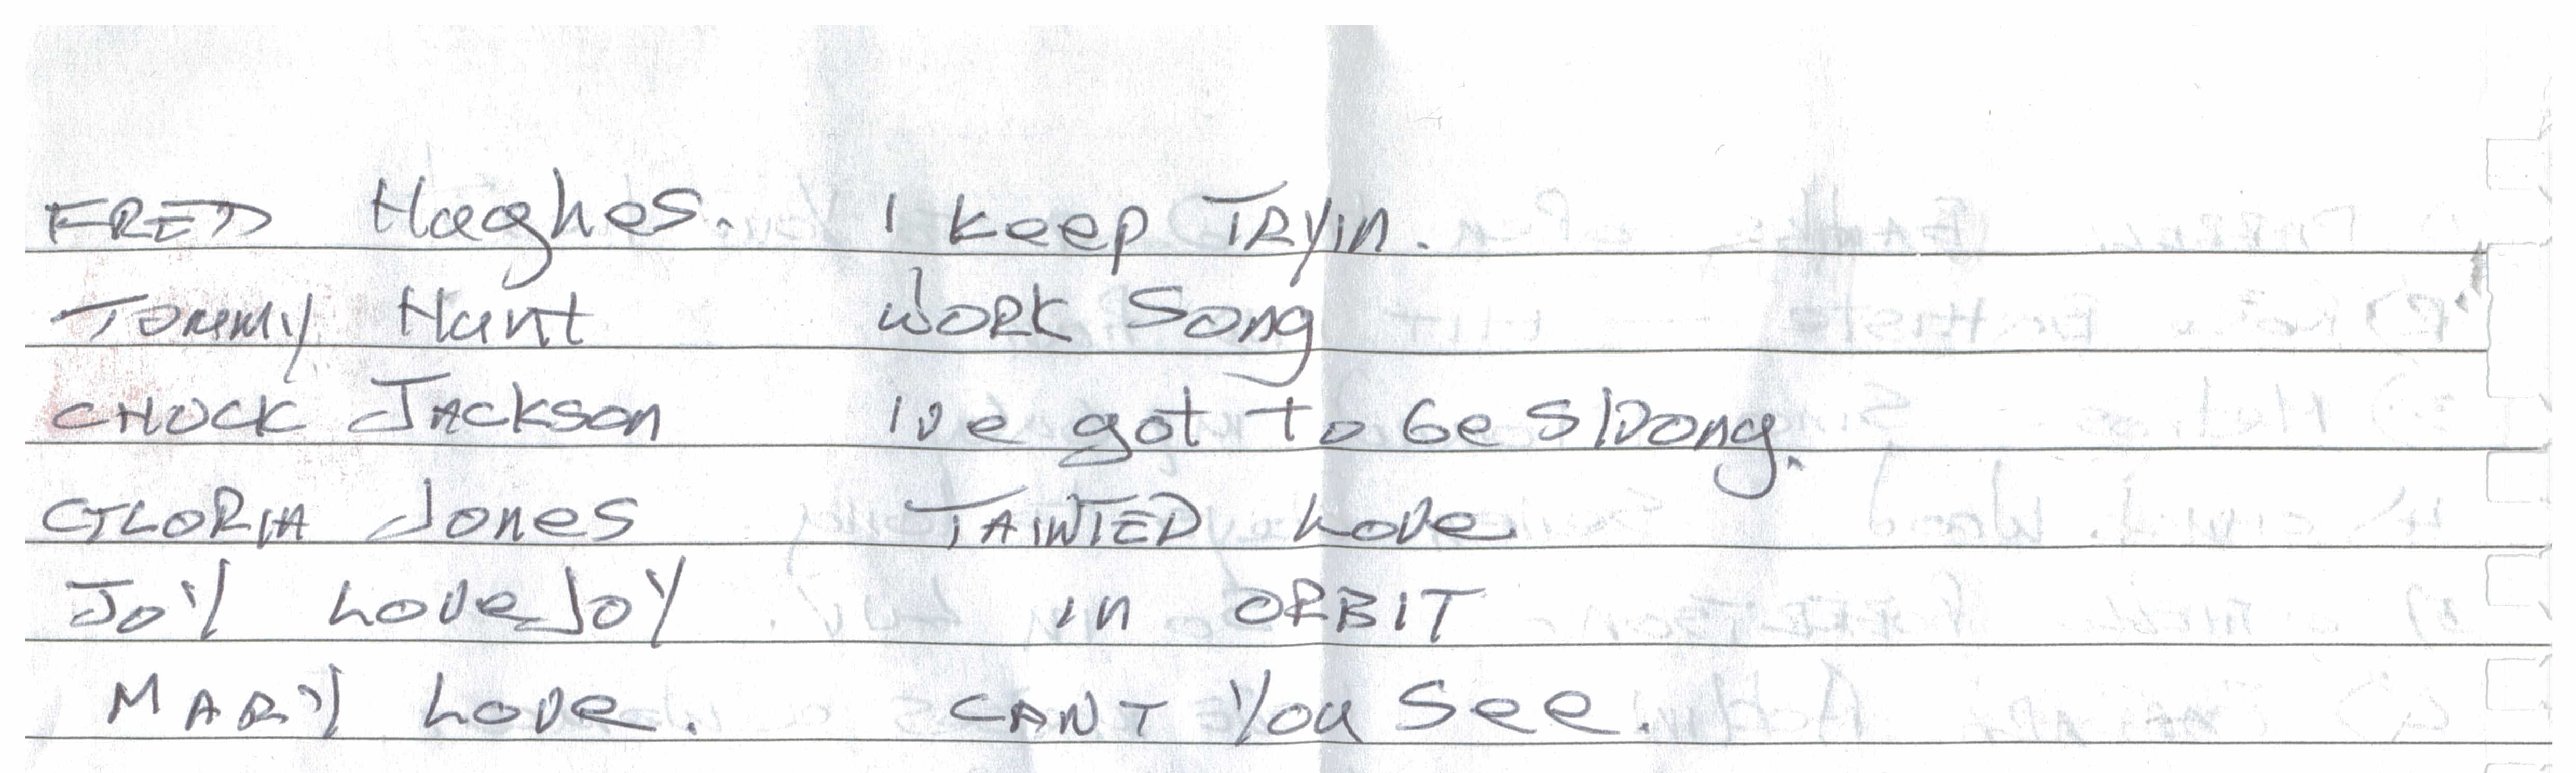 FRED Hughes. I keep TRYIN.
Tommy Hunt WORK Song
CHUCK JACKSON IVe got to be strong.
GLORIA Jones TAINTED Love
JOY LOVEJOY IN ORBIT
MARY Love. CANT You See.